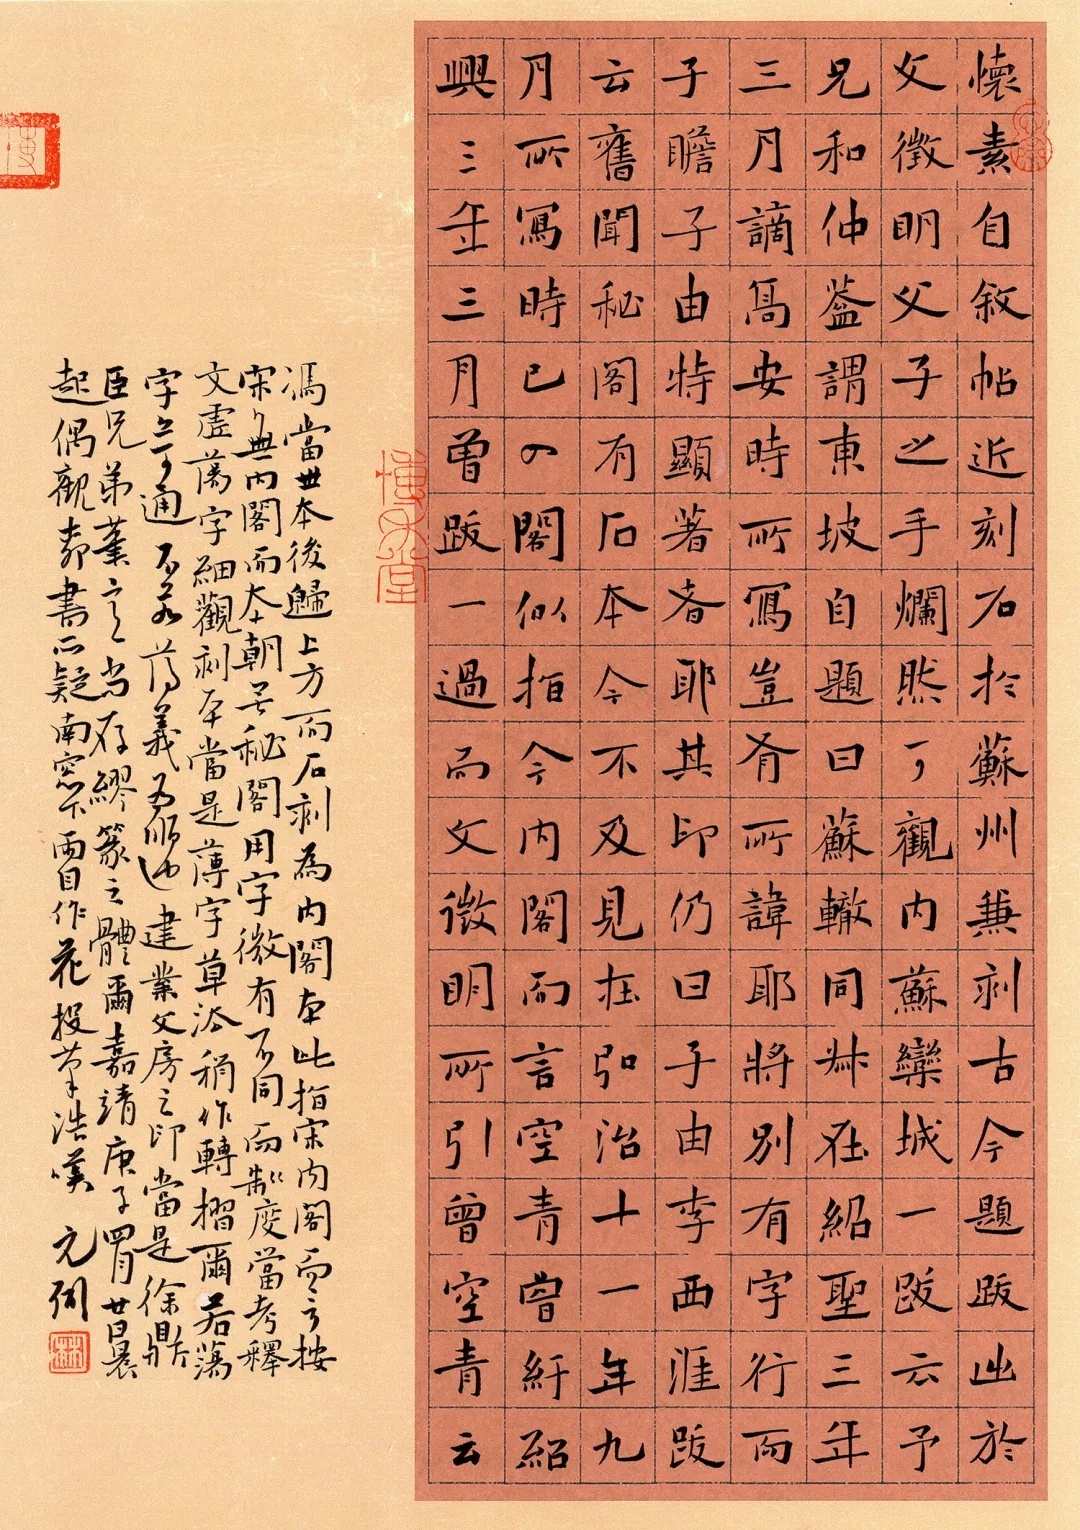 懷素自敘帖近刻石於蘇州兼刻古今題跋出於
文徵明父子之手爛然可觀內蘇欒城一跋云予
兄和仲蓋謂東坡自題曰蘇轍同叔在紹聖三年
三月謫高安時所寫豈有所諱耶將別有字行而
子瞻子由特顯著者耶其印仍曰子由李西涯跋
云舊聞秘閣有石本今不及見在弘治十一年九
月所寫時已入閣似指今內閣而言空青曾紆紹
興三年三月曾跋一過而文徵明所引曾空青云
馮當世本後歸上方而石刻為內閣本此指宋內閣而言按
宋人無內閣而本朝無秘閣用字微有不同而制度當考釋
文虛蕩字細觀刻本當是薄字草法稍作轉摺爾若蕩
字亦可通不若薄義為順也建業文房之印當是徐鼎
臣兄弟輩之尚存繆篆之體爾嘉靖庚子胃月廿日晨
起偶觀帖書所疑南窗下雨自作花投筆浩嘆 元